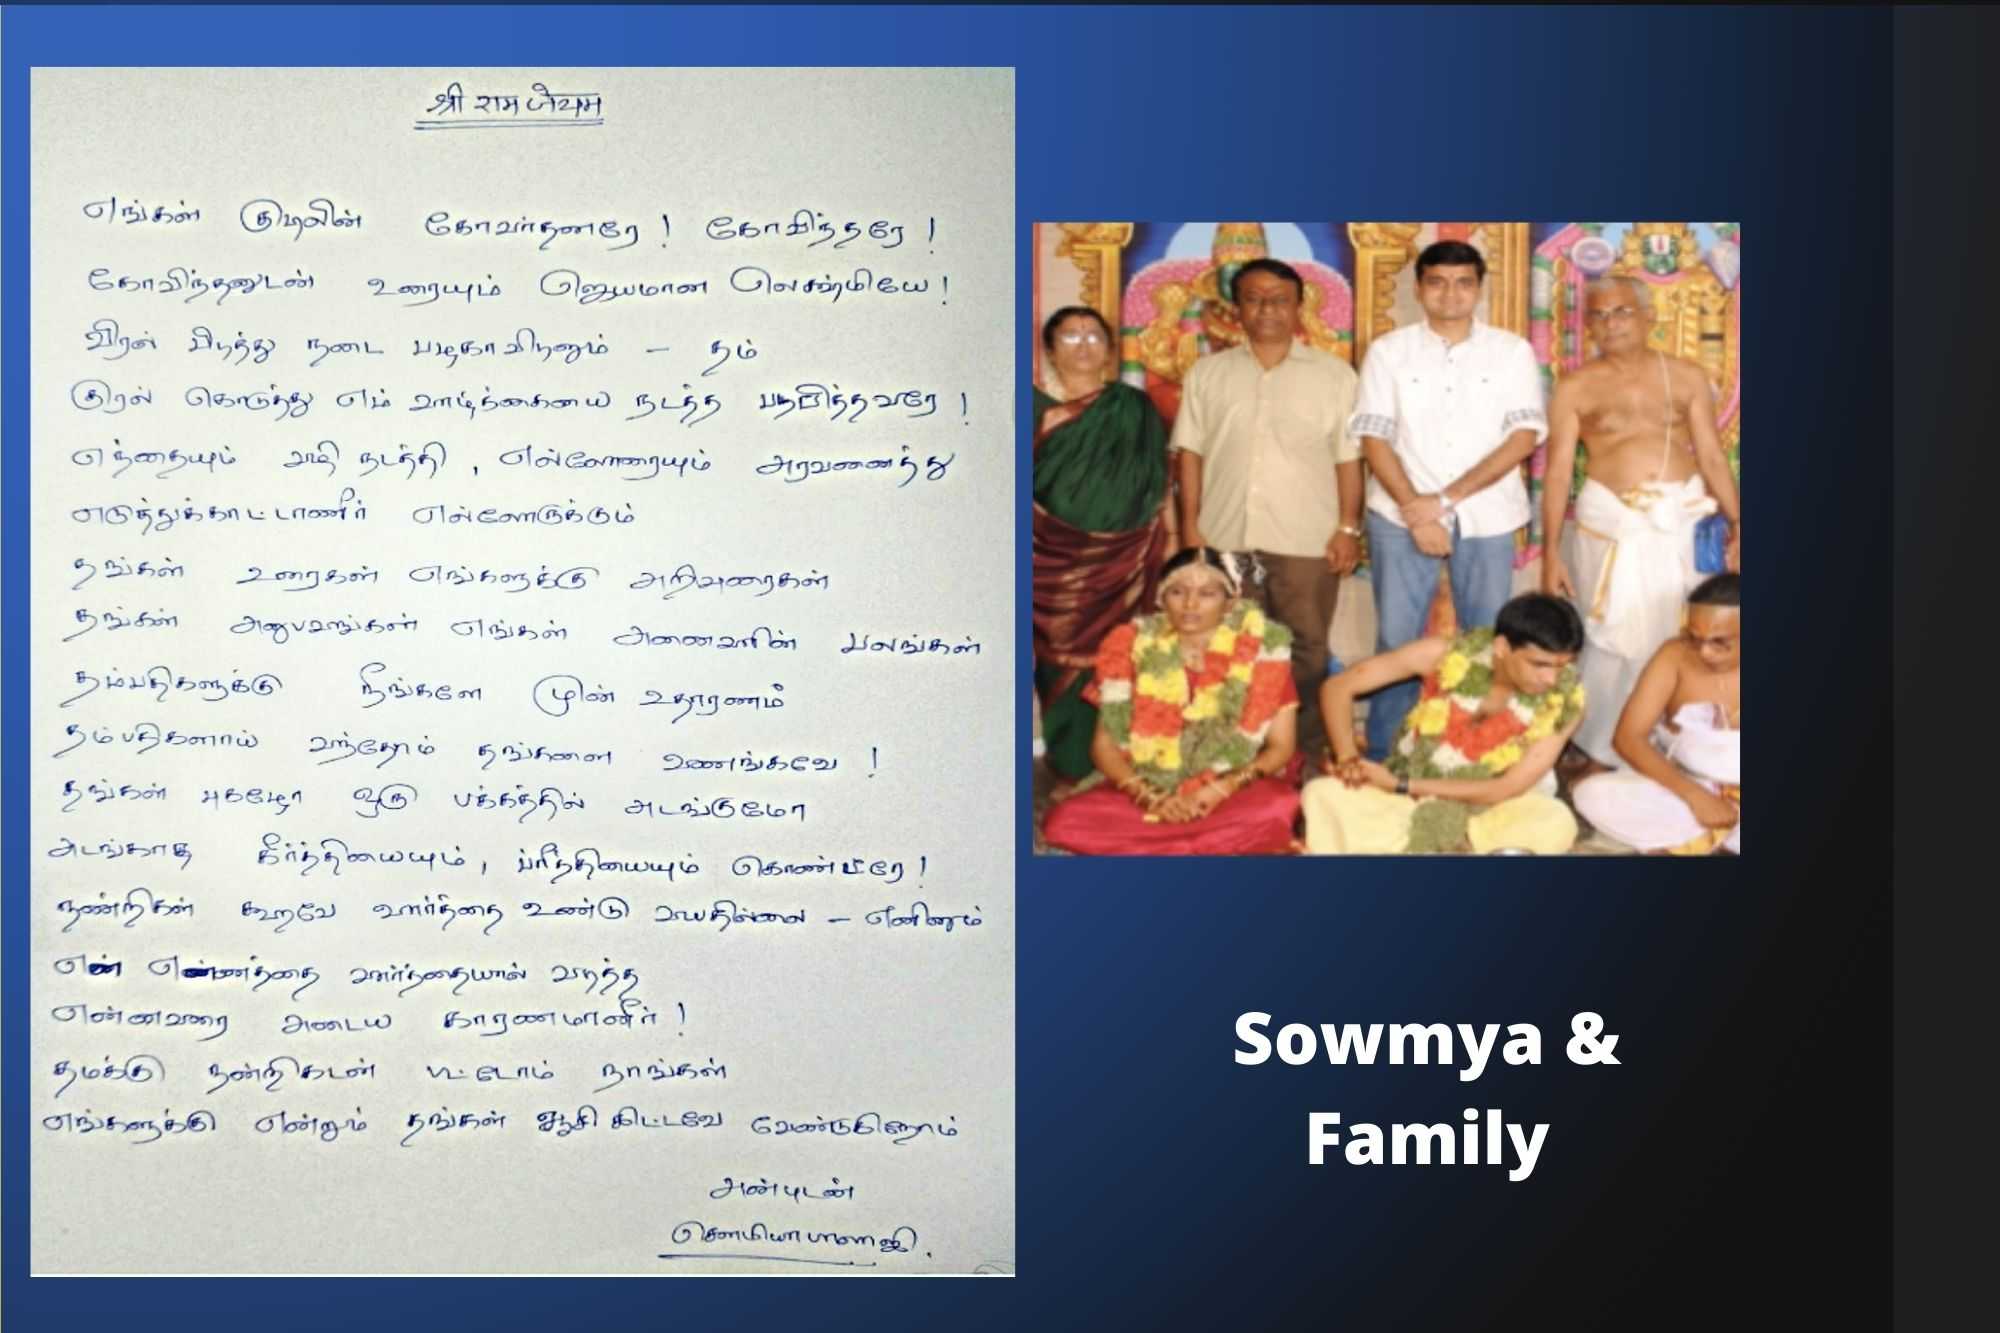 ஸ்ரீ ராம ஜெயம்
எங்கள் குடிலின் கோவர்தனரே! கோவிந்தரே!
கோவிந்தனுடன் உறையும் ஜெயமான லெசஷ்மியே!
விரல் பிடித்து நடை படிகாவிடினும் - தம்
குரல் கொடுத்து எம் வாழ்க்கையை நடத்த பதபித்தவரே!
எந்தையும் வழி நடத்தி, எல்லோரையும் அரவணைத்து
எடுத்துக்காட்டானீர் எல்லோருக்கும்
தங்கள் உரைகள் எங்களுக்கு அறிவுரைகள்
தங்கள் அனுபவங்கள் எங்கள் அனைவரின் பலங்கள்
தம்பதிகளுக்கு நீங்களே முன் உதாரணம்
தம்பதிகளாய் வந்தோம் தங்களை வணங்கவே!
தங்கள் புகழோ ஒரு பக்கத்தில் அடங்குமோ
அடங்காத கீர்த்தியையும், ப்ரீத்தியையும் கொண்டீரே!
நன்றிகள் கூறவே வார்த்தை உண்டு வயதில்லை - எனினும்
என் எண்ணத்தை வார்த்தையால் வடித்த
என்னவரை அடைய காரணமானீர்!
தமக்கு நன்றிகடன் பட்டோம் நாங்கள்
எங்களுக்கு என்றும் தங்கள் ஆசி கிட்டவே வேண்டுகிறோம்
அன்புடன்
சௌமியா பாலாஜி.
Sowmya &
Family